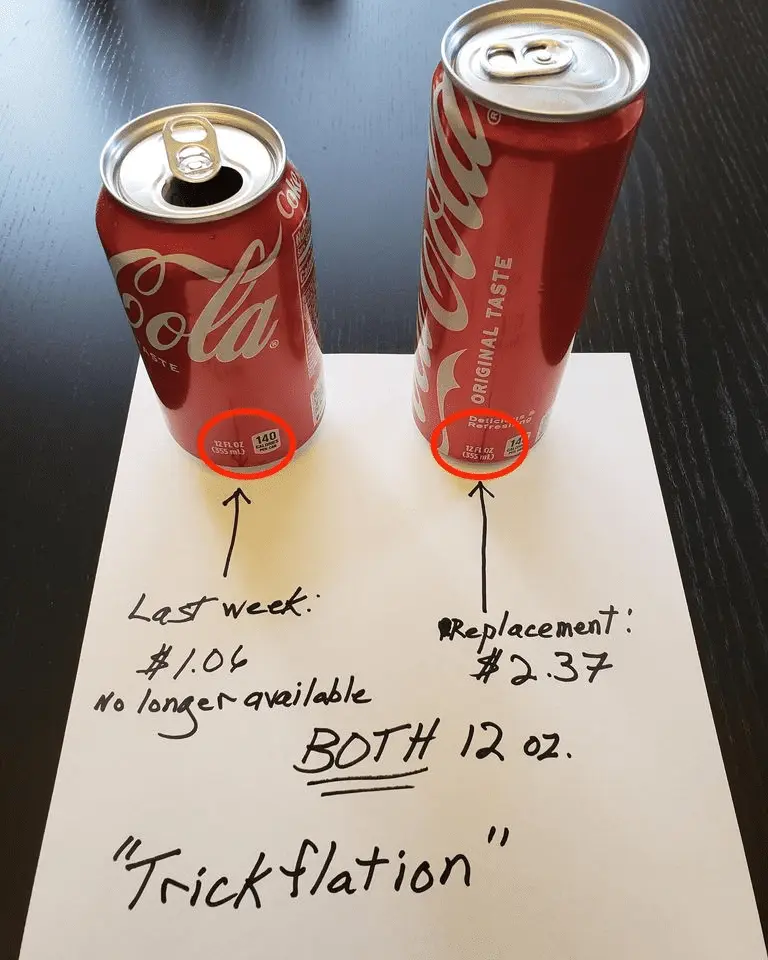 Coke
Cola®
TASTE
12 FL OZ
(355 mL)
140
CALORIES
PER CAN
Cola
®
ORIGINAL TASTE
Delicious &
Refreshing
12 FL OZ
(355 mL)
14
Last week:
$1.06
No longer available
Replacement:
$2.37
BOTH 12 oz.
"Trickflation"